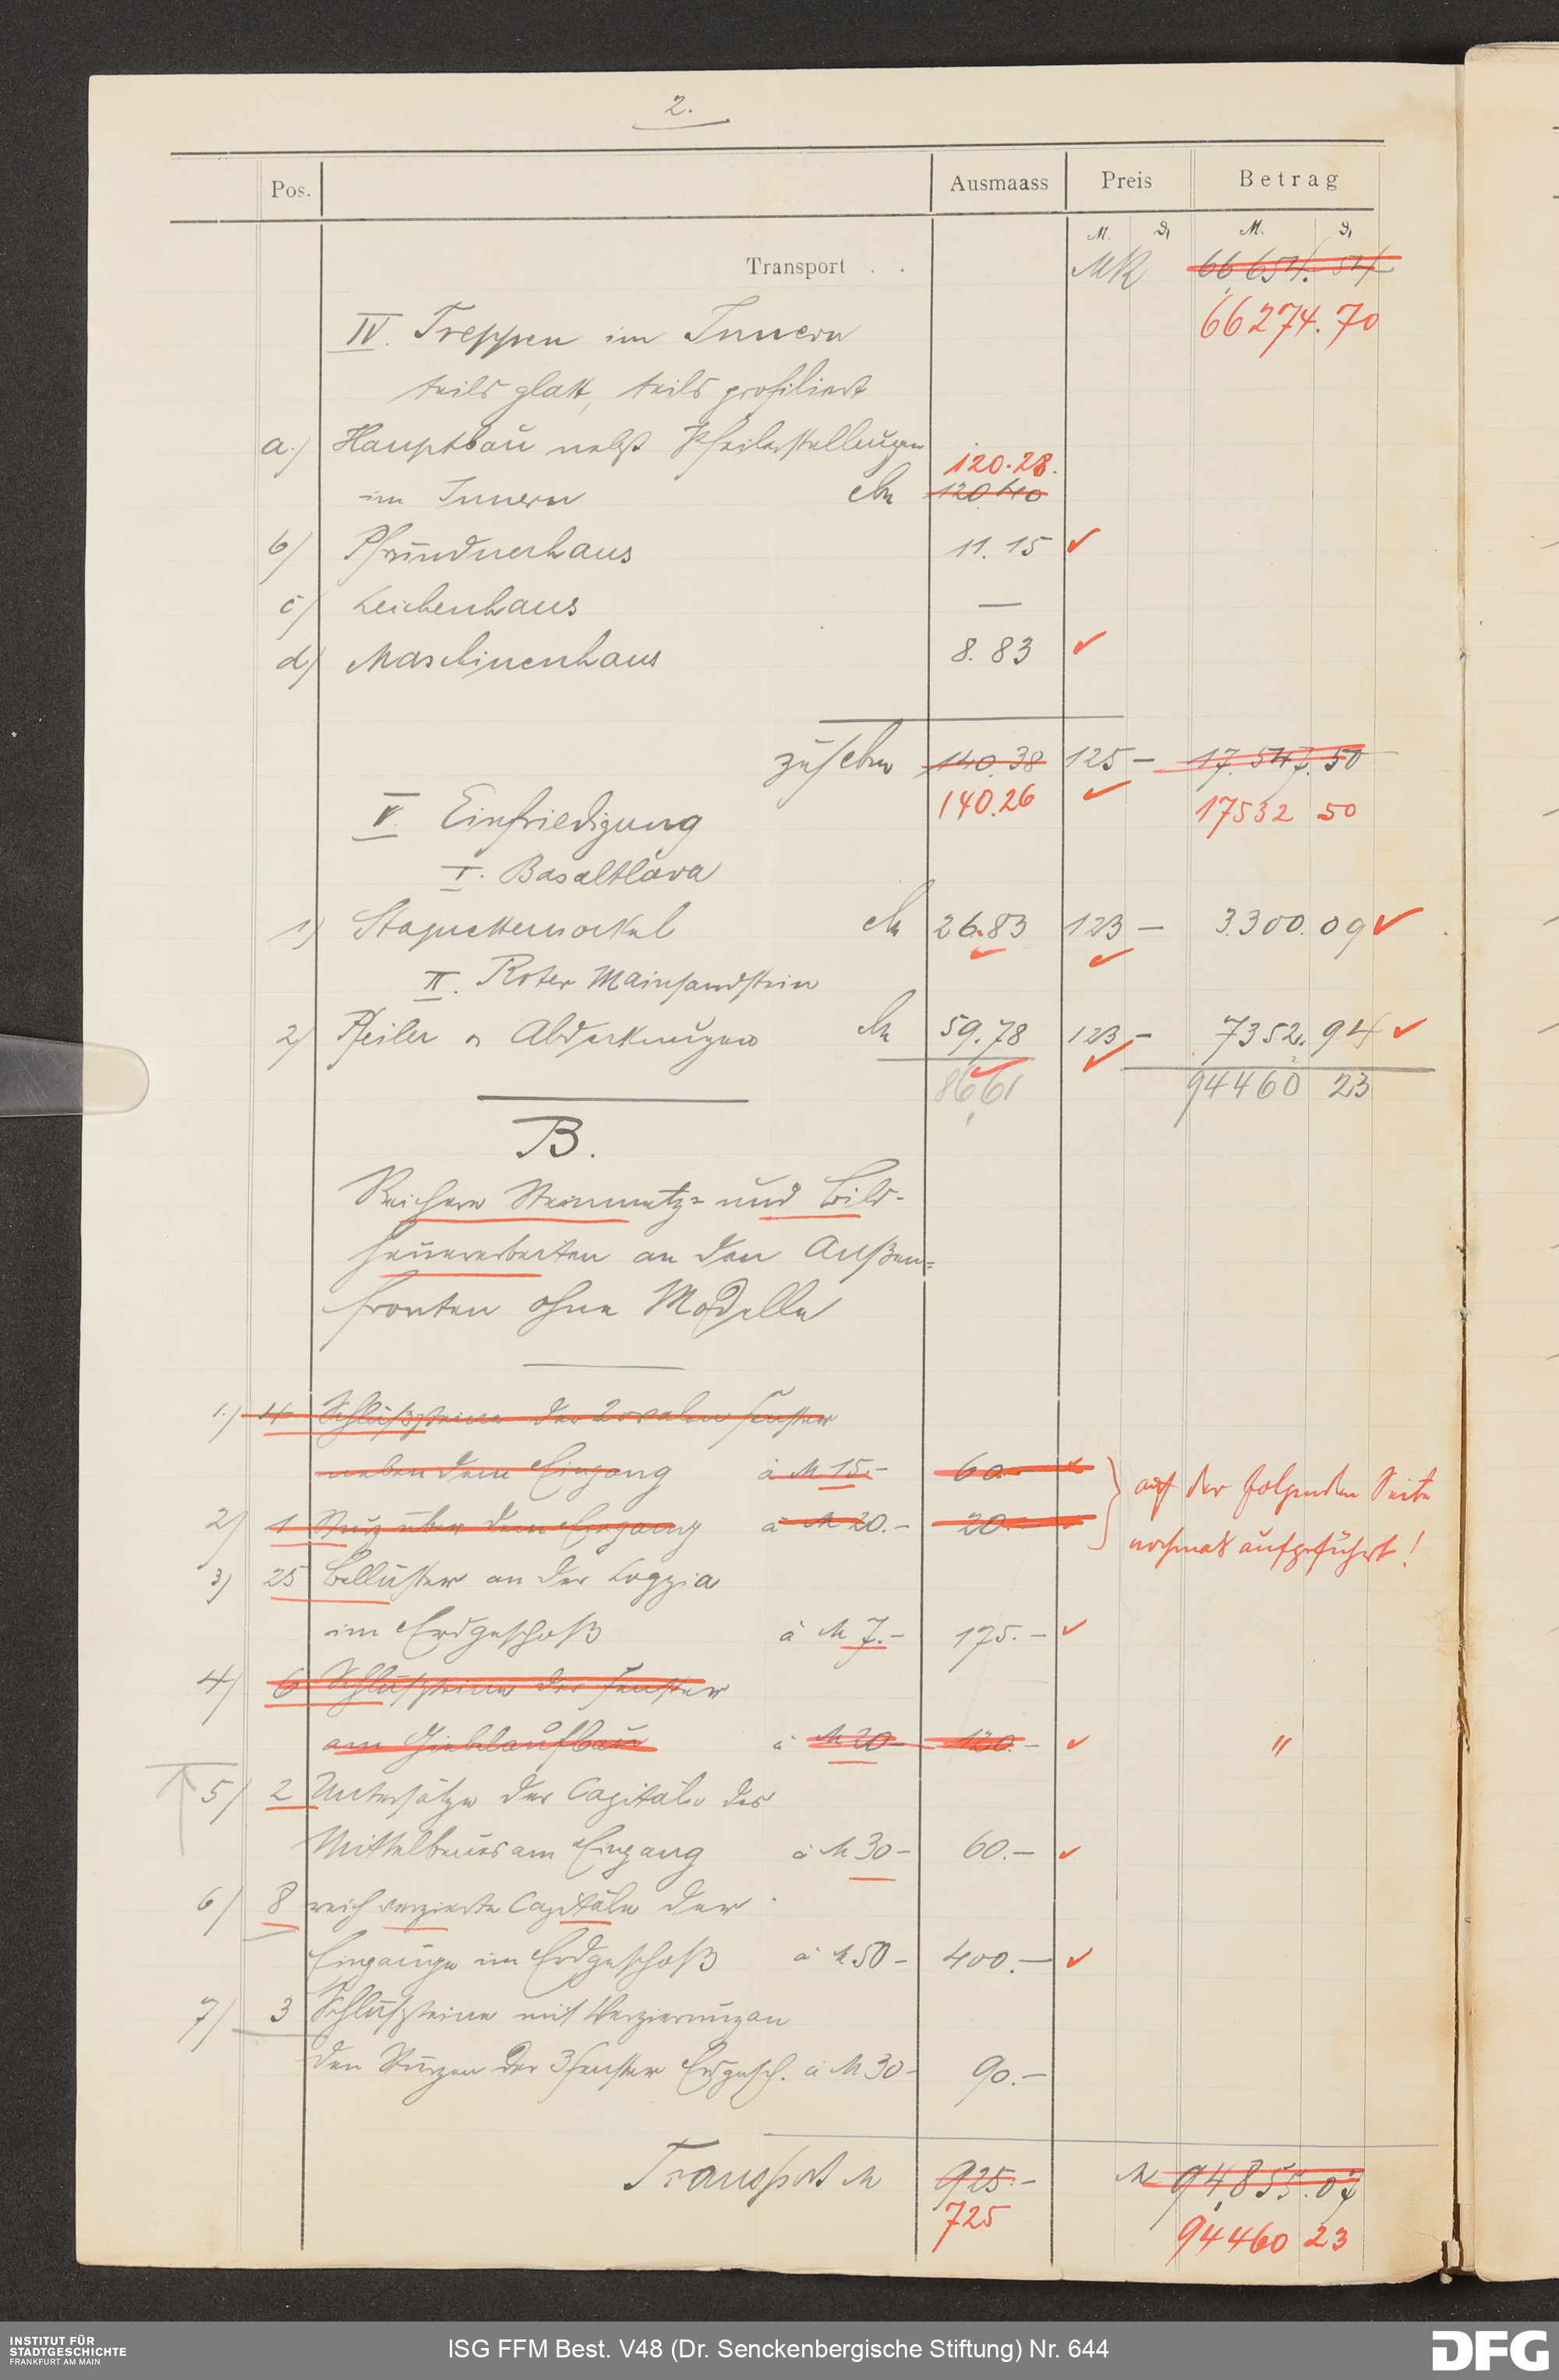 2.
Pos. Ausmaass Preis Betrag
M. M.
Transport . . MK 66 654. 54
66274.70
IV. Treppen im Innern
teils glatt, teils profiliert
a.) Hauptbau nebst Pfeilerstellungen 120.28.
im Innern cbm 120 40
b) Pfründnerhaus 11. 15
c) Leichenhaus —
d) Maschinenhaus 8. 83
zus cbm 140.38 125 — 17. 547. 50
140.26 17532 50
V. Einfriedigung
I. Basaltlava
1) Staquettensockel cbm 26.83 123 — 3.300. 09
II. Roter Mainsandstein
2) Pfeiler u Abdeckungen cbm 59.78 123 — 7352. 94
86,61 94460 23
B.
Reichere Steinmetz= und Bild-
hauerarbeiten an den Außen=
fronten ohne Modelle
1.) 4 Schlußsteine der 2 ovalen Fenster
neben dem Eingang à M 15.- 60.- auf der folgenden Seite
2) 1 Sturz über dem Eingang à M 20.- 20.- nochmals aufgeführt!
3) 25 Balluster an der Loggia
im Erdgeschoß à M 7.- 175.-
4) 6 Schlußsteine der Fenster
am Giebelaufbau à M 20- 120.- "
5) 2 Untersätze der Capitäle des
Mittelbaues am Eingang à M 30- 60.-
6) 8 reich verzierte Capitäle der
Eingänge im Erdgeschoß à M 50- 400.-
7) 3 Schlußsteine mit Verzierung an
den Stürzen der 3 Fenster Erdgesch. à M 30- 90.-
Transport M 925.- M 94,855.07
725 94460 23
INSTITUT FÜR
STADTGESCHICHTE
FRANKFURT AM MAIN
ISG FFM Best. V48 (Dr. Senckenbergische Stiftung) Nr. 644
DFG